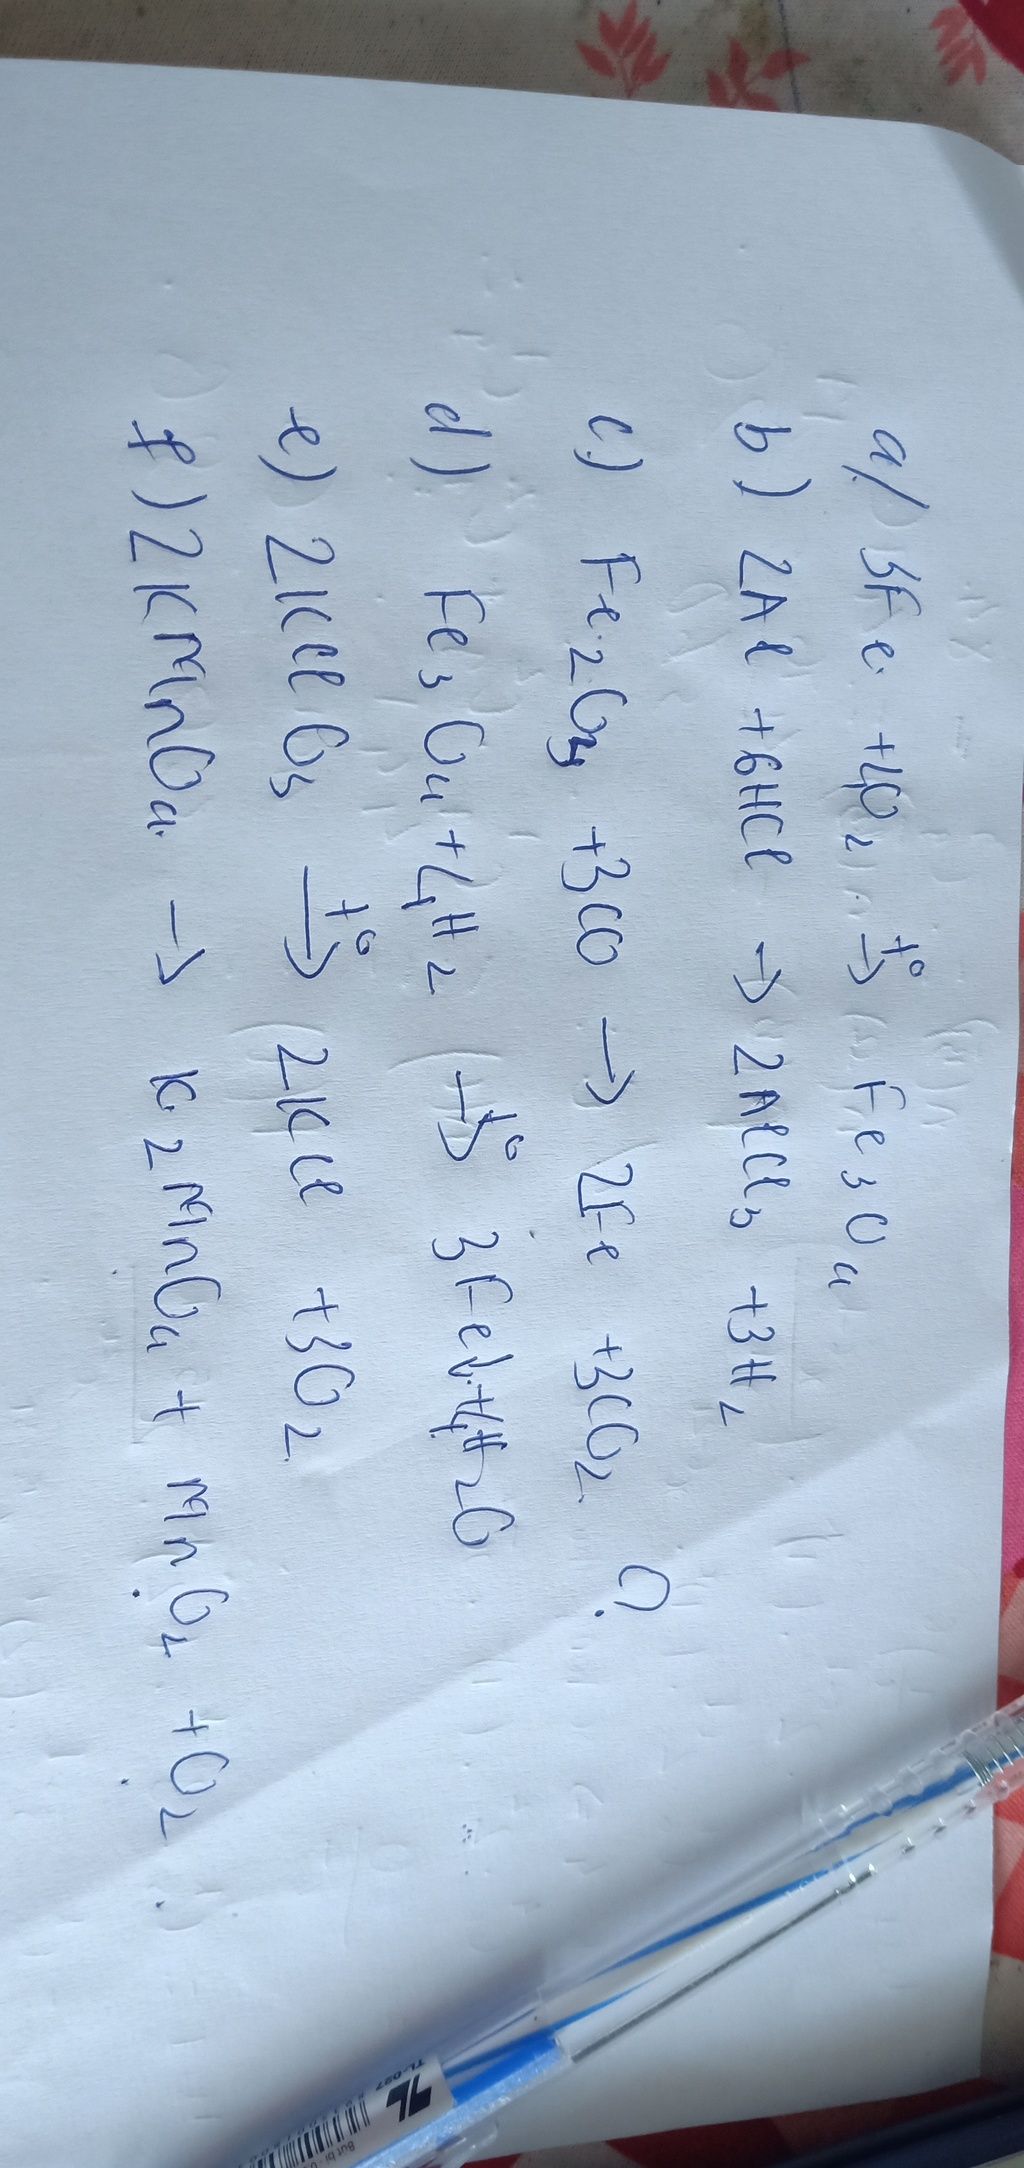 a/ 3Fe + 4O₂ t° → Fe₃O₄
b) 2Al + 6HCl → 2AlCl₃ + 3H₂
c) Fe₂O₃ + 3CO → 2Fe + 3CO₂
d) Fe₃O₄ + 4H₂ t° → 3Fe + 4H₂O
e) 2KClO₃ t° → 2KCl + 3O₂
f) 2KMnO₄ → K₂MnO₄ + MnO₂ + O₂
TL-027